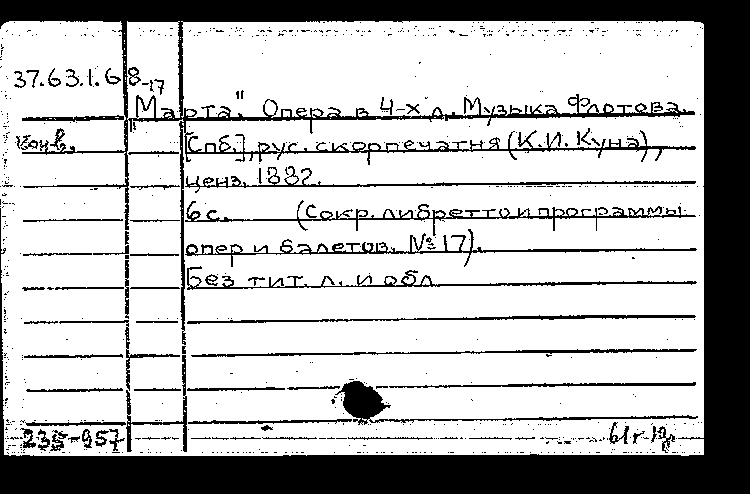 37.63.1.68-17
"Марта". Опера в 4-х д. Музыка Флотова.
Конв. [Спб.], рус. скорпечатня (К.И. Куна),
ценз. 1882.
6 с. (Сокр. либретто и программы
опер и балетов. № 17).
Без тит. л. и обл
235-957